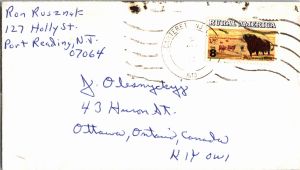 Ron Rusznak
127 Holly St.
Port Reading, N.J.
07064
RURAL AMERICA
8
J. Olesnyckyj
43 Huron St.
Ottawa, Ontario, Canada
K1Y 0W1